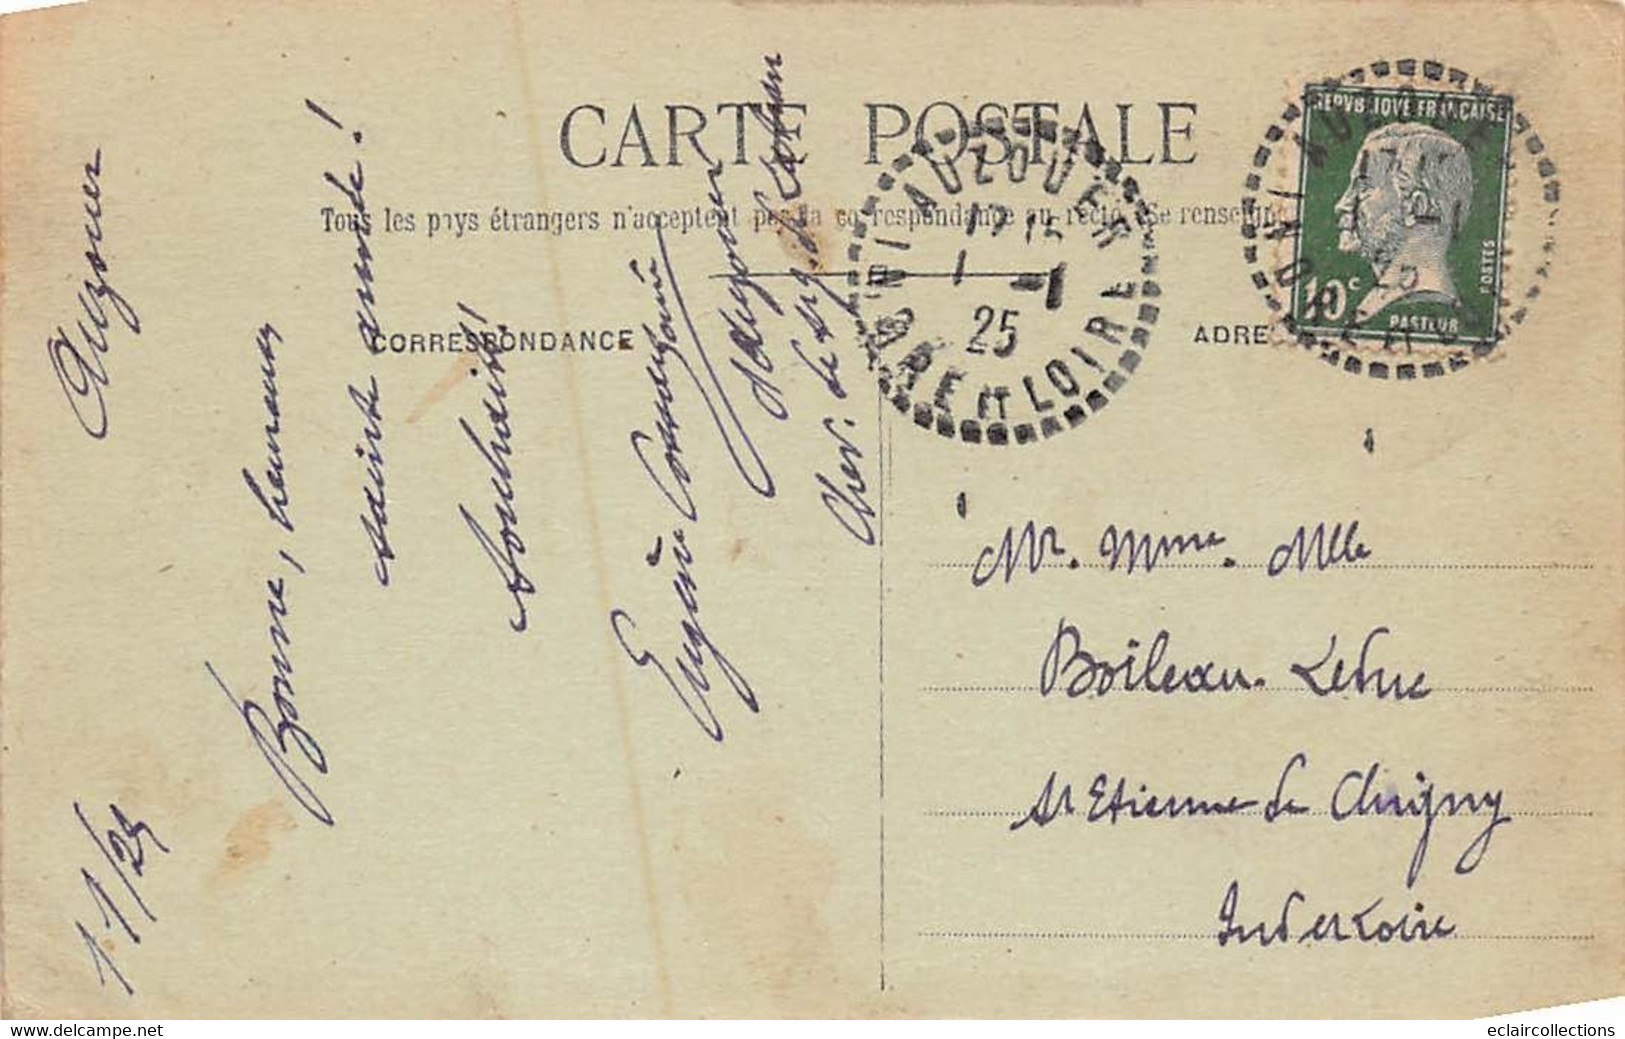 CARTE POSTALE
Tous les pays étrangers n'acceptent pas la correspondance au recto (Se renseigner
CORRESPONDANCE
ADRE
REPVBLIQVE FRANÇAISE
10c
POSTES
PASTEUR
AUZOUER
17 15
1 - 1
25
INDRE ET LOIRE
Auzouer
1 1/25
Bonne, heureuse
sainte année!
Souhaits!
Eugène
d'Auzouer
Chev. de
Mr. Mme. Mlle
Boileau-Leduc
St Etienne de Chigny
Ind et Loire
www.delcampe.net
eclaircollections